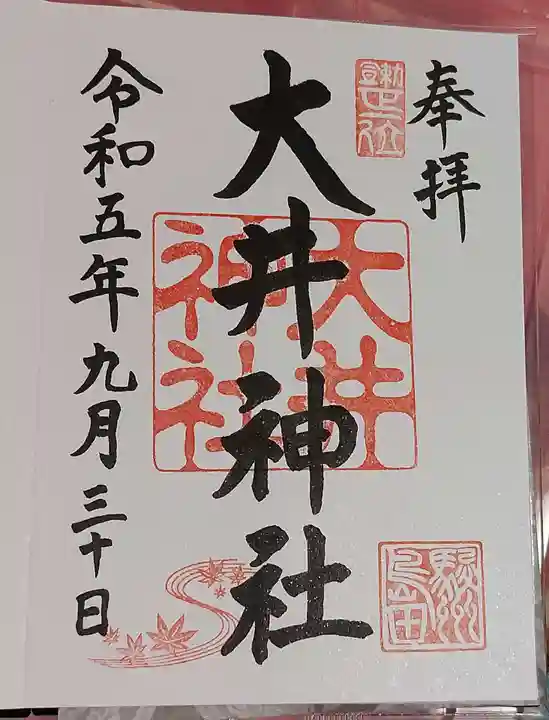 奉拝
大井神社
大井
神社
駿州
島田
令和五年九月三十日